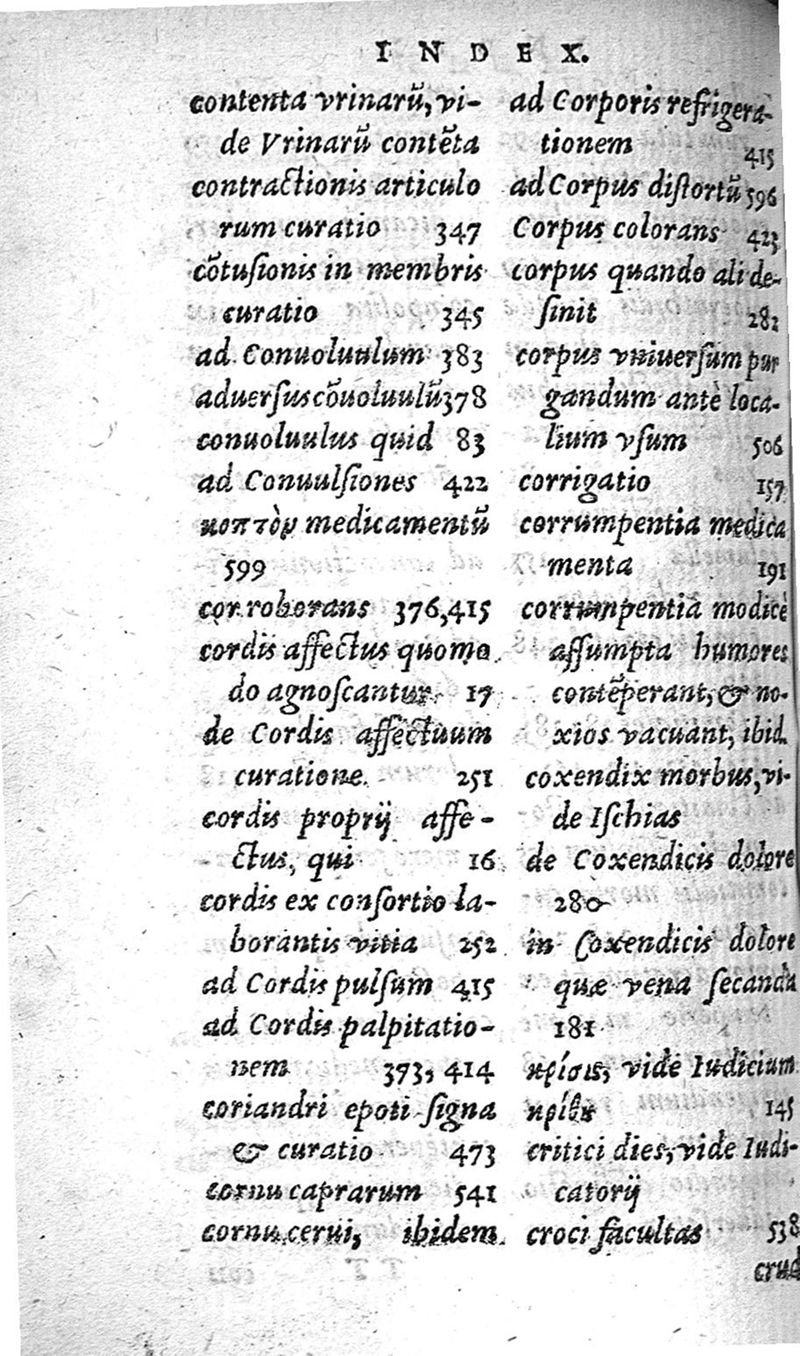 INDEX.
contenta vrinarũ, vi-
de Vrinarũ contẽta
contractionis articulo
rum curatio 347
cõtusionis in membris
curatio 345
ad Conuoluulum 383
aduersus cõuoluulũ 378
conuoluulus quid 83
ad Conuulsiones 422
κοπτὸν medicamentũ
599
corroborans 376,415
cordis affectus quomo
do agnoscantur 17
de Cordis affectuum
curatione. 251
cordis proprij affe-
ctus, qui 16
cordis ex consortio la-
borantis vitia 252
ad Cordis pulsum 415
ad Cordis palpitatio-
nem 373, 414
coriandri epoti signa
& curatio 473
cornu caprarum 541
cornu cerui, ibidem
ad Corporis refrigera-
tionem 415
ad Corpus distortũ 596
Corpus colorans 423
corpus quando ali de-
sinit 282
corpus vniuersum pur
gandum antè loca-
lium vsum 506
corrigatio 157
corrumpentia medica
menta 191
corrumpentia modicè
assumpta humores
contẽperant, & no-
xios vacuant, ibid.
coxendix morbus, vi-
de Ischias
de Coxendicis dolore
280
in Coxendicis dolore
quæ vena secanda
181
κρίσις, vide Iudicium
145
critici dies, vide Iudi-
catorij
croci facultas 538
crud